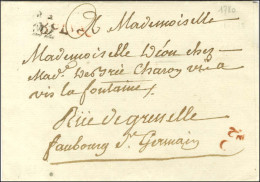 A Mademoiselle
Mademoiselle Déon chez
Mad. Charon vis a
vis la fontaine
Rüe de grenelle
faubourg St. Germain